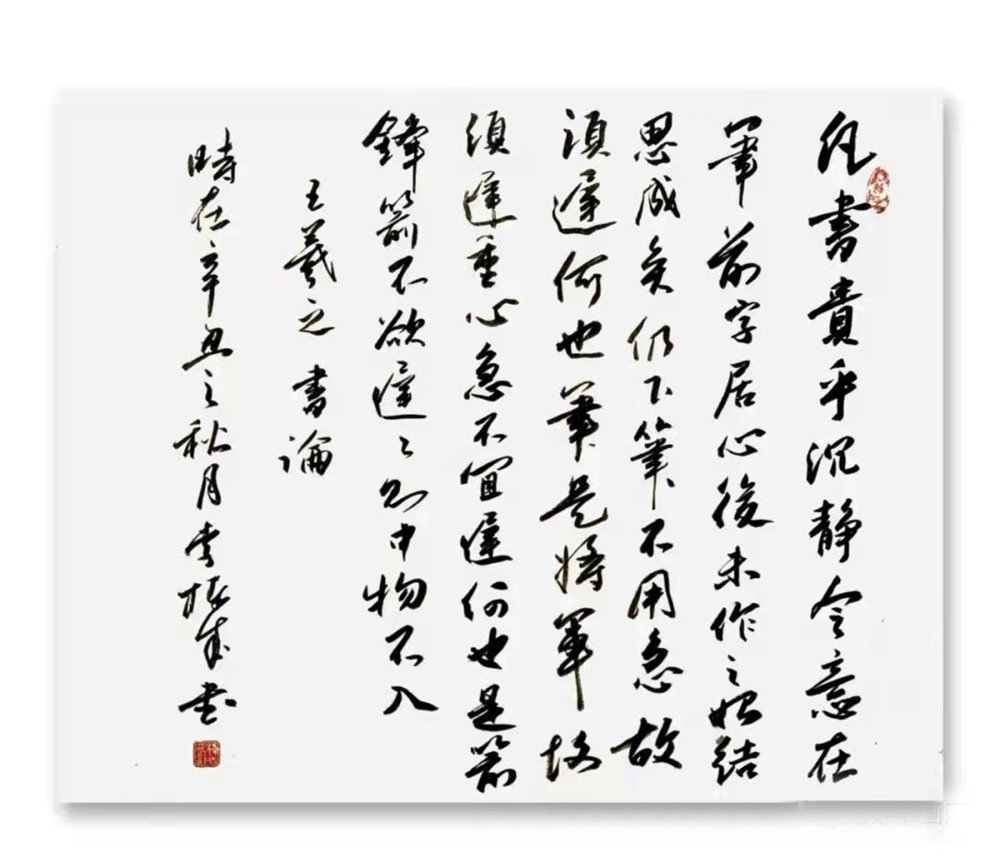 凡書貴乎沉静令意在
筆前字居心後未作之始結
思成矣仍下筆不用急故
須遲何也筆是將軍故
須遲重心急不宜遲何也是箭
鋒箭不欲遲々則中物不入
王羲之書論
時在辛丑之秋月李振書